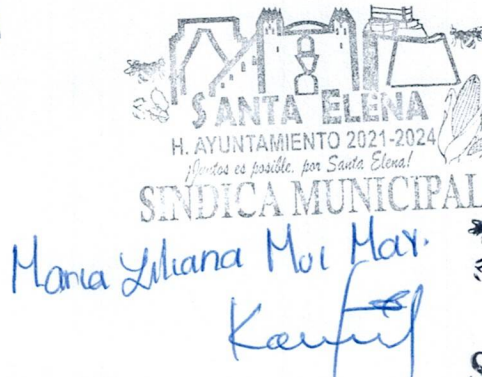 SANTA ELENA
H. AYUNTAMIENTO 2021-2024
¡Juntos es posible, por Santa Elena!
SINDICA MUNICIPAL
Maria Liliana Mui May.